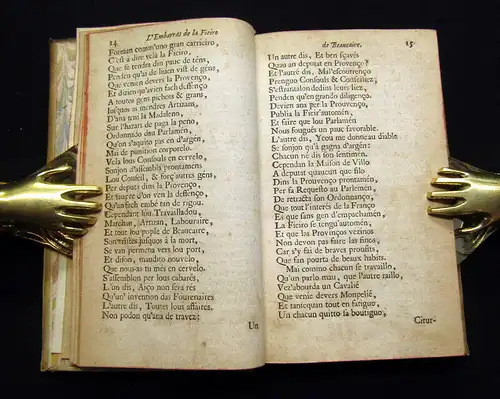 14 L'Embarras de la Fieiro
Forman coum'uno gran carriciro,
C'est à dire velà la Fieiro,
Que se tendra din pauc de téns,
Penden qu'ai de luien vist de géns,
Que venien devers la Provenço,
Et disien qu'avien fach deffenço
A toutes gens pichots & grans,
Jusqu'os as mendres Artizans,
D'ana ten la Madaleno,
Sur l'hazart de paga la peno,
Ordonnado dau Parlamén,
Qu'on s'aquito pas en d'argén,
Mai de punition corporelo.
Vela lous Consouls en cervelo,
Sonjon d'assembla prontamens
Lou Conseil, & forç'autres géns,
Per deputa dins la Provenço,
Et saupre d'on ven la deffenço,
Qu'an fach embé tan de rigou.
Cependant lou Travailladou,
Marchan, Artizan, Labouraire,
Et tout lou pople de Beaucaire,
Son velites jusquo à la mort,
Se van permena vers lou port,
Et disson, maudito nouvelo,
Que nous-as tu més en cervelo.
S'assemblon per lous cabarés,
L'un dis, Aiço non sera rés
Qu'un' invention das Fourenaires
L'autre dis, Toutes lous affaires.
Non podon qu'ana de travez:
Un
de Beaucaire. 15
Un autre dis, Et ben sçavés
Quau an deputat en Provenço?
Et l'autré dis, Mal'escourrenço
Prengoo Consouls & Conseiliez,
S'estrantalon dedins lours liez,
Penden qu'en grando diligenço.
Devien ana per la Prouvenço,
Publia la Fieir'automén,
Et faire que lou Parlamén
Nous fouguès un pauc favorable.
L'autre dis, Yeou me donnau diable
Se sonjon qu'à gagna d'argén:
Chacun né dis son sentimén.
Cependan la Maison de Villo
A deputat quaucun que filo
Dins la Provenço prontamén,
Per fa Requesto au Parlamén,
De retracta son Ordonnanço,
Que tout l'interés de la Franço
Es que sans gen d'empachamén,
La Fieiro se tengu'automén,
Et que las Provinços vezinos
Non devon pas faire las finos,
Car s'y fai de braves proufits,
Que fan pourta de beaux habits.
Mai commo chacun se travaillo,
Qu'un parlo mau, que l'autre raillo,
Vez'abourda un Cavalié
Que venié devers Monpelié,
Et tanequan tout en fatiguo,
Un chacun quitto sa boutiguo,
Citur-